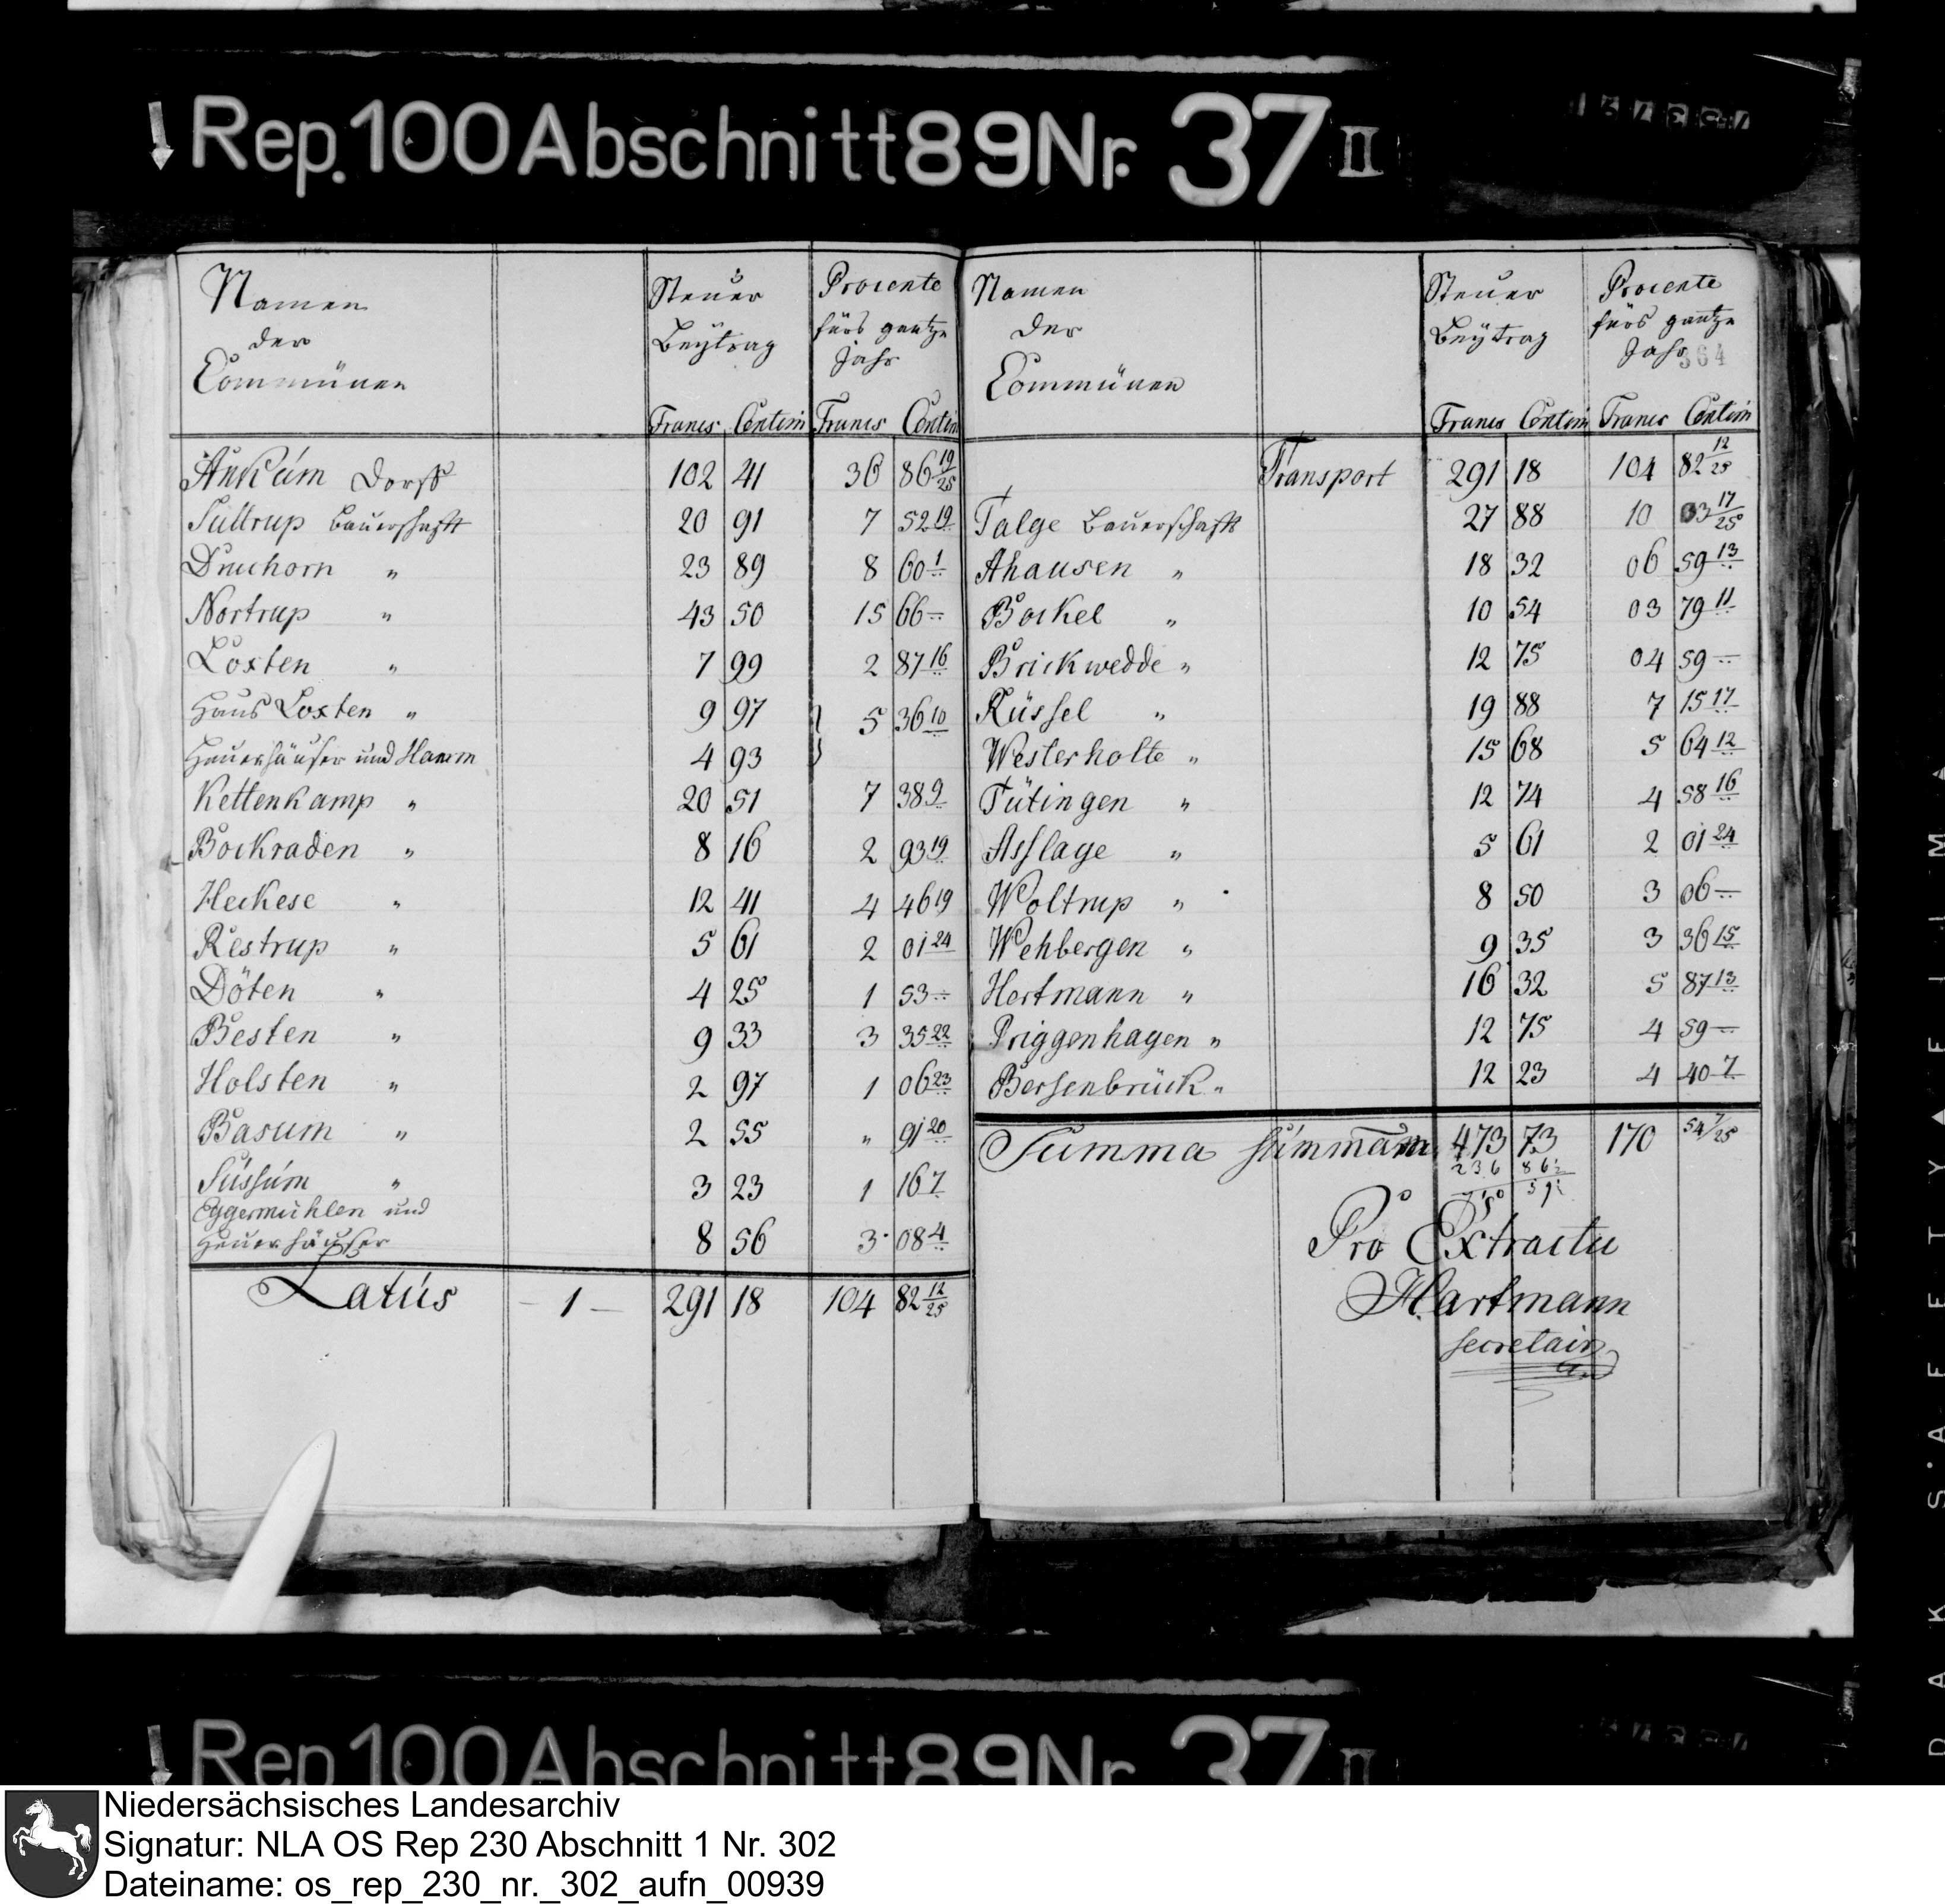 Rep. 100 Abschnitt 89 Nr. 37 II
Namen
der
Commünen
Steuer
Beÿtrag
Procente
fürs gantze
Jahr
Francs Centim Francs Centim
Ankum Dorff 102 41 36 86 19/25
Suttrup Bauerschafft 20 91 7 52 19
Druchorn " 23 89 8 60 1
Nortrup " 43 50 15 66 —
Loxten " 7 99 2 87 16
Haus Loxten " 9 97 } 5 36 10
Heuerhäuser und Hamm 4 93 }
Kettenkamp " 20 51 7 38 9
Bockraden " 8 16 2 93 19
Heckese " 12 41 4 46 19
Restrup " 5 61 2 01 24
Döten " 4 25 1 53 —
Besten " 9 33 3 35 22
Holsten " 2 97 1 06 23
Basum " 2 55 " 91 20
Süssum " 3 23 1 16 7
Eggermühlen und
Heuerhäuser 8 56 3 08 4
Latus — 1 — 291 18 104 82 12/25
Namen
der
Commünen
Steuer
Beÿtrag
Procente
fürs gantze
Jahr
364
Francs Centim Francs Centim
Transport 291 18 104 82 12/25
Talge Bauerschafft 27 88 10 03 17/25
Ahausen " 18 32 06 59 13
Bockel " 10 54 03 79 11
Brickwedde " 12 75 04 59 —
Rüssel " 19 88 7 15 17
Westerholte " 15 68 5 64 12
Tütingen " 12 74 4 58 16
Asslage " 5 61 2 01 24
Woltrup " 8 50 3 06 —
Wehbergen " 9 35 3 36 15
Hertmann " 16 32 5 87 13
Priggenhagen " 12 75 4 59 —
Bersenbrück " 12 23 4 40 7
Summa summarum 473 73 170 54 7/25
236 86½
Pro Extractu
Hartmann
secretair
Rep 100 Abschnitt 89 Nr. 37 II
Niedersächsisches Landesarchiv
Signatur: NLA OS Rep 230 Abschnitt 1 Nr. 302
Dateiname: os_rep_230_nr._302_aufn_00939